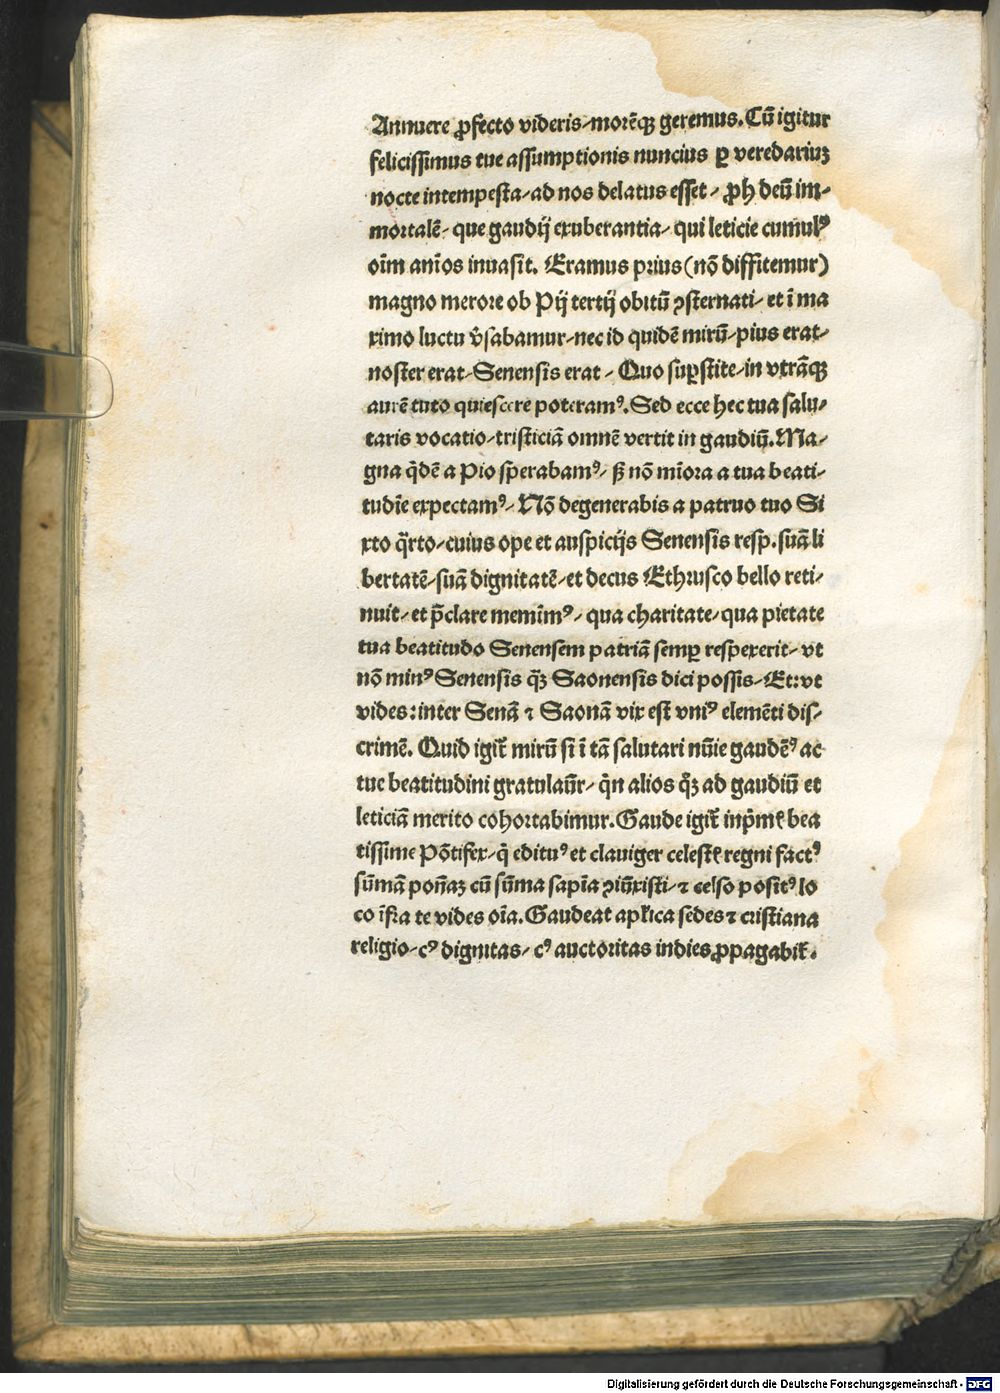 Annuere ꝓfecto videris/morē꜒ꝗ geremus. Cū igitur
felicissimus tue assumptionis nuncius ꝑ veredariuꝫ
nocte intempesta/ad nos delatus esset/ ꝓh deū im/
mortalē/ que gaudij exuberantia/ qui leticie cumulꝰ
oīm anīos inuasit. Eramus prius (nō diffitemur)
magno merore ob Pij tertij obitū ꝯsternati/ et ī ma
ximo luctu v̄sabamur/nec id quidē mirū/pius erat/
noster erat/Senensis erat/ Quo suꝑstite/in vtrāqꝫ
aurē tuto quiescere poteramꝰ. Sed ecce hec tua salu/
taris vocatio/tristiciā omnē vertit in gaudiū. Ma/
gna q̄dē a Pio sperabamꝰ/ sꝫ nō mīora a tua beati/
tudīe expectamꝰ/ Nō degenerabis a patruo tuo Si
xto q̄rto/cuius ope et auspicijs Senensis resp. suā li
bertatē/suā dignitatē/et decus Ethrusco bello reti/
nuit/et p̄clare memīmꝰ/ qua charitate/qua pietate
tua beatitudo Senensem patriā semꝑ respexerit/ vt
nō minꝰ Senensis q̄ꝫ Saonensis dici possis/Et:vt
vides:inter Senā ⁊ Saonā vix est vniꝰ elemēti dis/
crimē. Quid igit̄ mirū si ī tā salutari nūie gaudēꝰ ac
tue beatitudini gratulaūr/ q̄n alios q̄ꝫ ad gaudiū et
leticiā merito cohortabimur. Gaude igit̄ inp̄mꝭ bea
tissime Pōtifex/q̄ edituꝰ et clauiger celestꝭ regni factꝰ
sūmā poñaꝫ cū sūma sapīa ꝯiūxisti/⁊ celso positꝰ lo
co īfra te vides oīa. Gaudeat apl̄ica sedes ⁊ cristiana
religio/cꝰ dignitas/ cꝰ auctoritas indies ꝓpagabit̄.
Digitalisierung gefördert durch die Deutsche Forschungsgemeinschaft - DFG